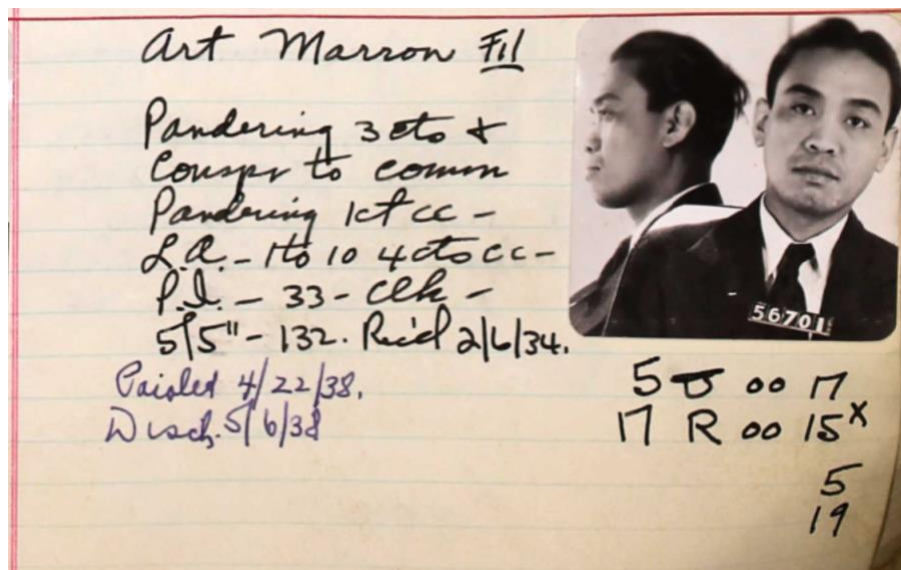 Art Marron Fil
Pandering 3 cts &
Conspr to comm
Pandering 1 ct cc -
L.A. - 1 to 10 4 cts cc -
P.I. - 33 - Clk -
5/5" - 132. Rec'd 2/6/34.
Paroled 4/22/38.
Disch. 5/6/38
56701
5 U oo 17
17 R oo 15 x
5
19